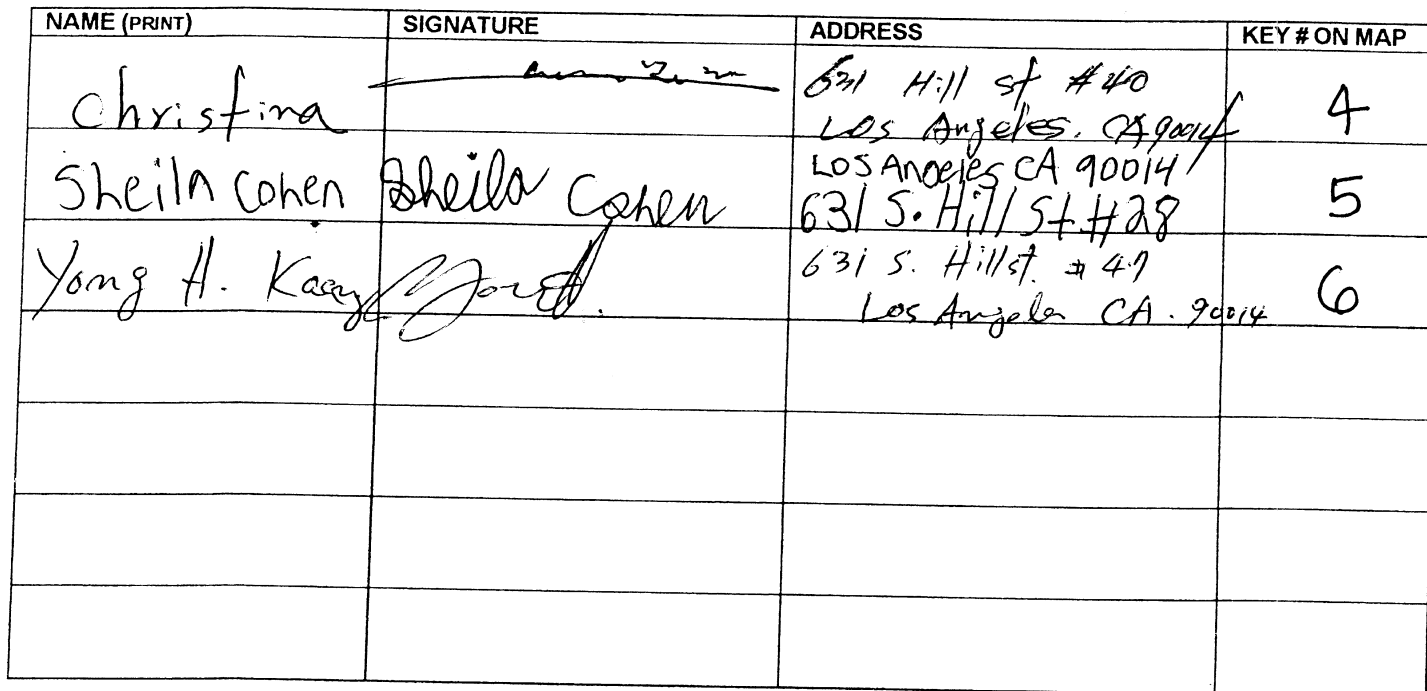 NAME (PRINT) SIGNATURE ADDRESS KEY # ON MAP
Christina 631 Hill st #40 4
Los Angeles. CA 90014
Sheila Cohen Sheila Cohen LOS Angeles CA 90014 5
631 S. Hill St #28
Yong H. 631 S. Hill st. #47 6
Los Angeles CA. 90014